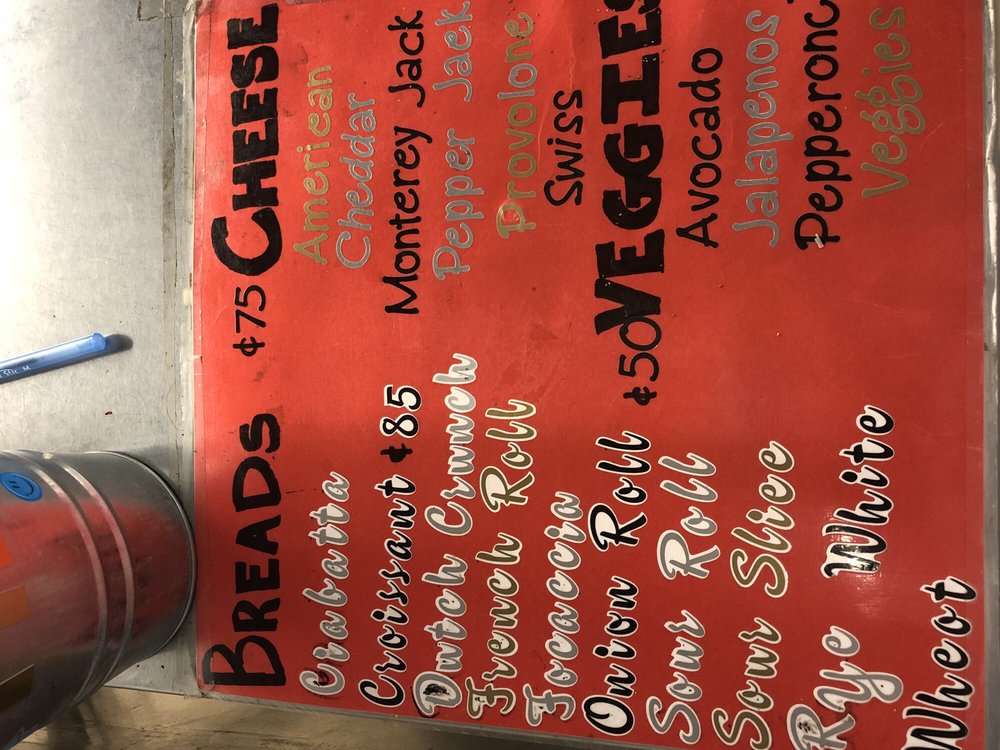 BREADS
Ciabatta
Croissant ¢85
Dutch Crunch
French Roll
Focaccia
Onion Roll
Sour Roll
Sour Slice
Rye White
Wheat
¢75 CHEESE
American
Cheddar
Monterey Jack
Pepper Jack
Provolone
Swiss
¢50 VEGGIES
Avocado
Jalapenos
Pepperonc
Veggies